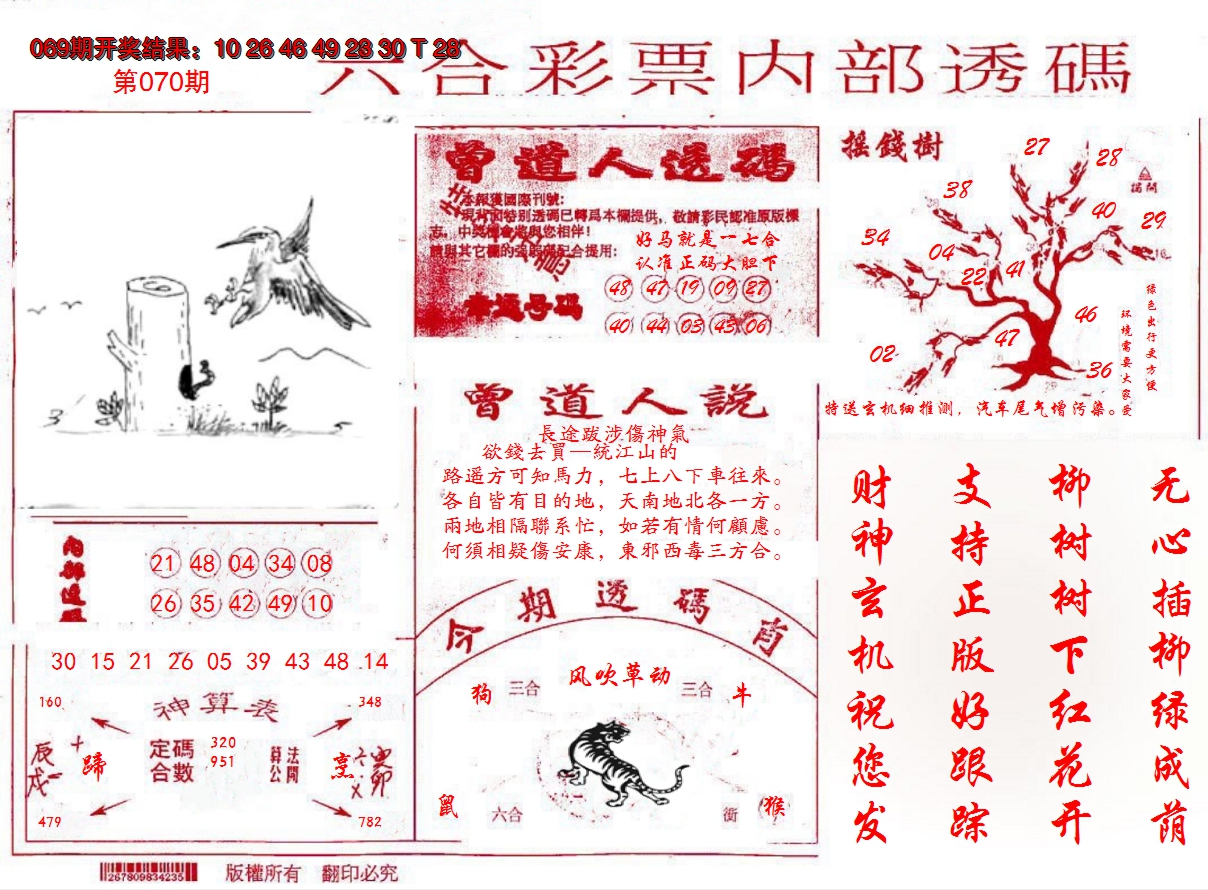 069期开奖结果：10 26 46 49 23 30 T 28
第070期
六合彩票内部透碼
曾道人透碼
本報獲國際刊號：
現背面特别透碼已轉爲本欄提供，敬請彩民認准原版標
志，中獎機會將與您相伴！
請與其它欄的强眼碼配合提用：
好马就是一七合
认准正码大胆下
幸运号码
48 47 19 09 27
40 44 03 43 06
摇錢樹
27
28
38
40
29
34
04
41
22
46
47
02
36
绿色出行更方便
环境需要大家爱
特送玄机细推测，汽车尾气增污染。
曾道人説
長途跋涉傷神氣
欲錢去買一統江山的
路遥方可知馬力，七上八下車往來。
各自皆有目的地，天南地北各一方。
兩地相隔聯系忙，如若有情何顧慮。
何須相疑傷安康，東邪西毒三方合。
内部透碼
21 48 04 34 08
26 35 42 49 10
30 15 21 26 05 39 43 48 14
160
348
神算表
定碼
合數
320
951
蹄
烹
479
782
今期透碼肖
风吹草动
狗
三合
三合
牛
鼠
六合
衝
猴
无心插柳绿成荫
柳树树下红花开
支持正版好跟踪
财神玄机祝您发
267809834235
版權所有 翻印必究